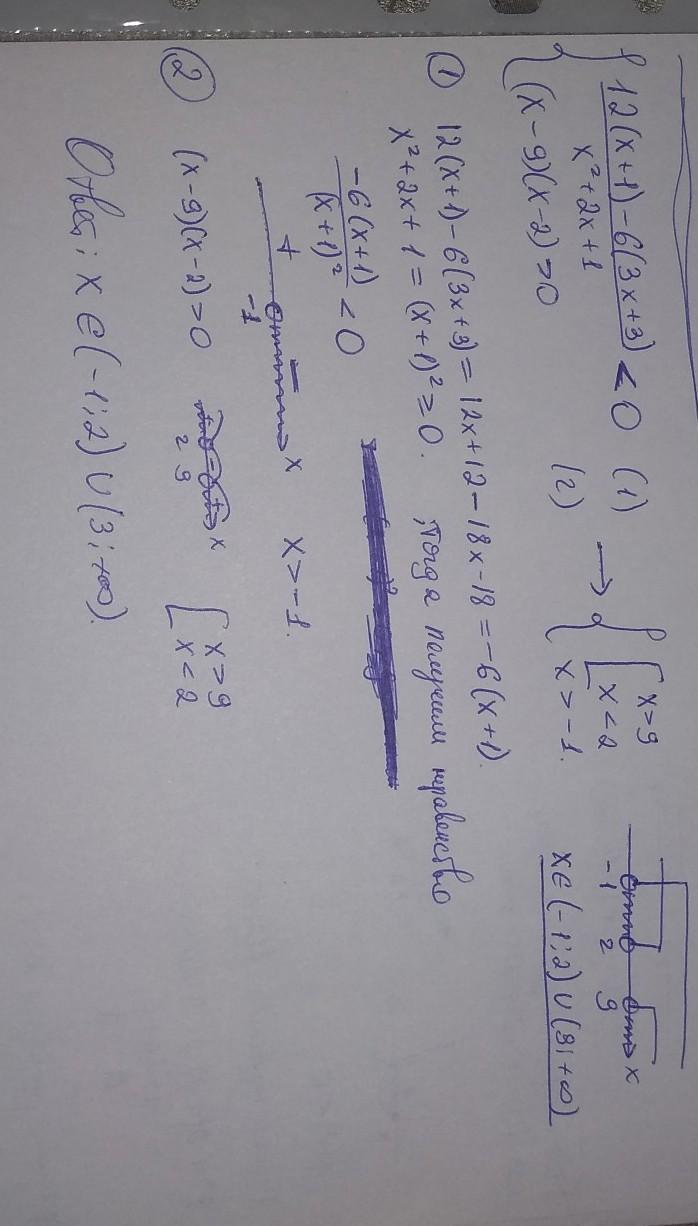 { (12(x+1)-6(3x+3))/(x²+2x+1) < 0 (1) → { [ x>9
(x-9)(x-2)>0 (2) x<2
x>-1.
-1 2 9 x
x∈(-1;2)∪(9;+∞)
① 12(x+1)-6(3x+3)=12x+12-18x-18=-6(x+1).
x²+2x+1=(x+1)²≥0. Тогда получим неравенство
-6(x+1)/(x+1)² < 0
+ -1 - x x>-1.
② (x-9)(x-2)>0 + 2 - 9 + x [ x>9
x<2
Ответ: x∈(-1;2)∪(9;+∞).